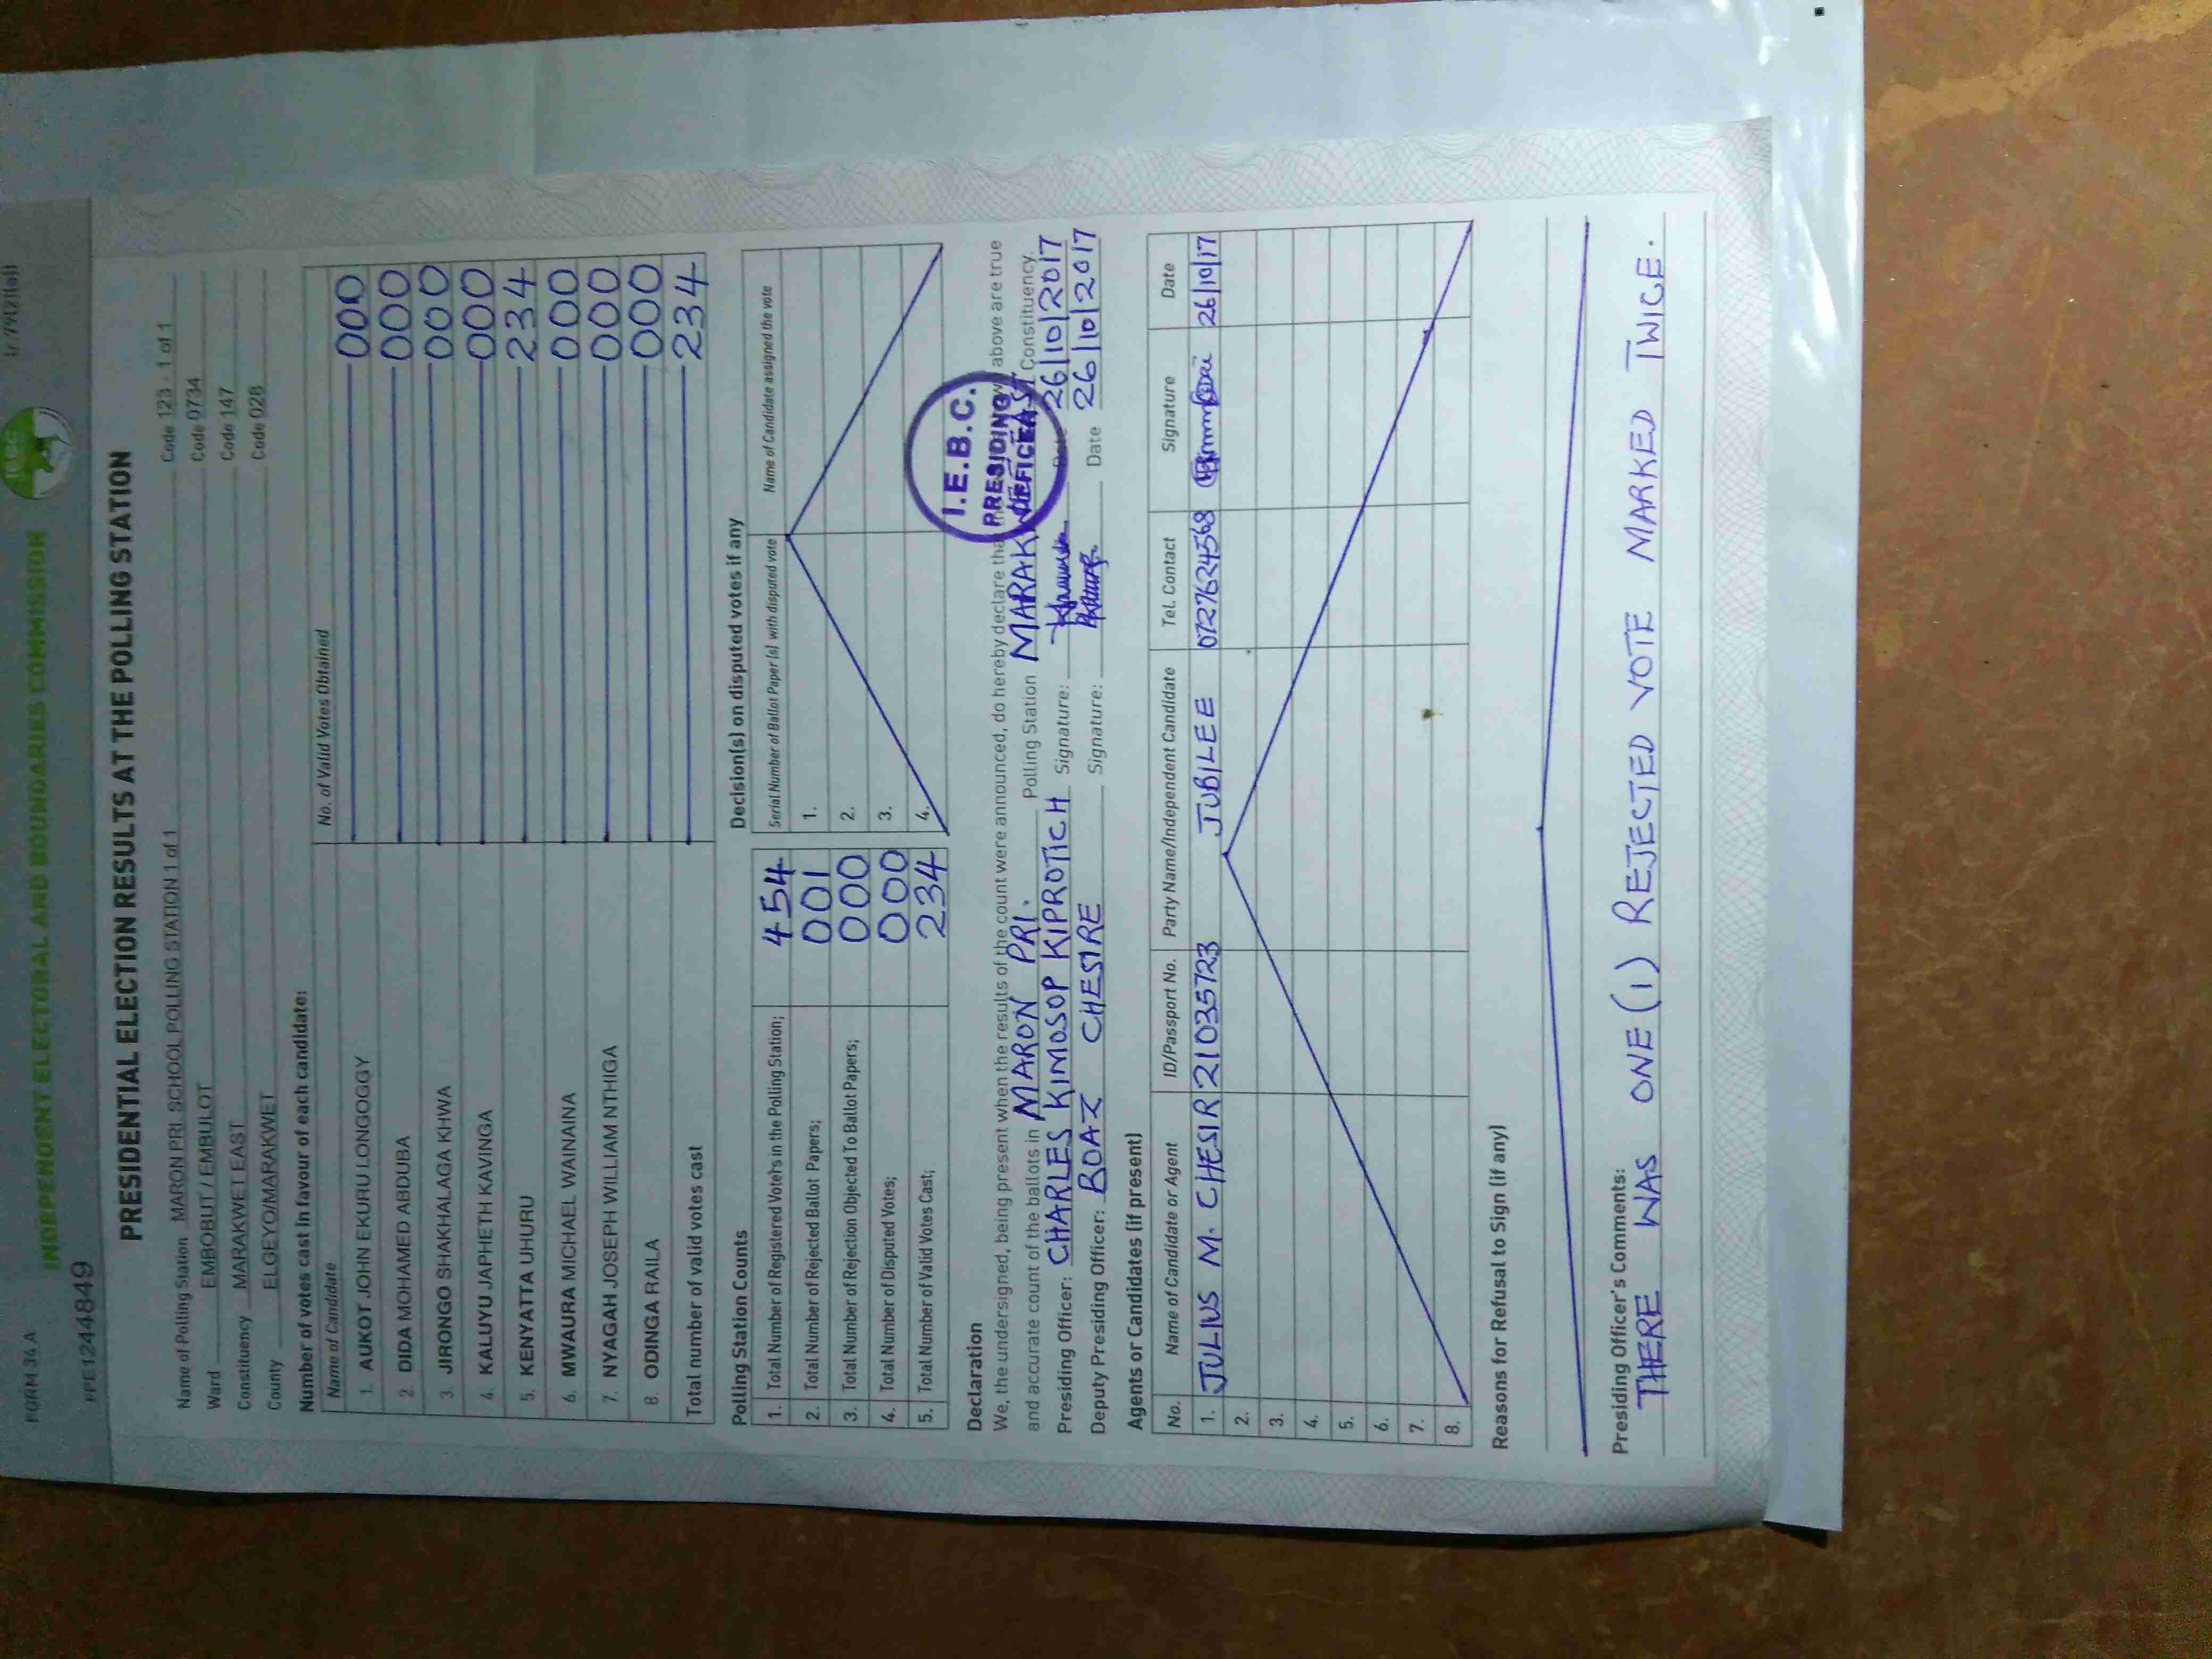 FORM 34 A
INDEPENDENT ELECTORAL AND BOUNDARIES COMMISSION
IEBC
PRESIDENTIAL ELECTION RESULTS AT THE POLLING STATION
Name of Polling Station MARON PRI. SCHOOL POLLING STATION 1 of 1 Code 123 - 1 of 1
Ward EMBOBUT / EMBULOT Code 0734
Constituency MARAKWET EAST Code 147
County ELGEYO/MARAKWET Code 028
Number of votes cast in favour of each candidate:
Name of Candidate No. of Valid Votes Obtained
1. AUKOT JOHN EKURU LONGOGGY 000
2. DIDA MOHAMED ABDUBA 000
3. JIRONGO SHAKHALAGA KHWA 000
4. KALUYU JAPHETH KAVINGA 000
5. KENYATTA UHURU 234
6. MWAURA MICHAEL WAINAINA 000
7. NYAGAH JOSEPH WILLIAM NTHIGA 000
8. ODINGA RAILA 000
Total number of valid votes cast 234
Polling Station Counts
1. Total Number of Registered Voters in the Polling Station; 454
2. Total Number of Rejected Ballot Papers; 001
3. Total Number of Rejection Objected To Ballot Papers; 000
4. Total Number of Disputed Votes; 000
5. Total Number of Valid Votes Cast; 234
Decision(s) on disputed votes if any
Serial Number of Ballot Paper (s) with disputed vote Name of Candidate assigned the vote
1.
2.
3.
4.
Declaration
We, the undersigned, being present when the results of the count were announced, do hereby declare that above are true
and accurate count of the ballots in MARON PRI. Polling Station MARAKWET EAST Constituency.
Presiding Officer: CHARLES KIMOSOP KIPROTICH Signature: Date 26/10/2017
Deputy Presiding Officer: BOAZ CHESIRE Signature: Date 26/10/2017
I.E.B.C.
PRESIDING
OFFICER
Agents or Candidates (if present)
No. Name of Candidate or Agent ID/Passport No. Party Name/Independent Candidate Tel. Contact Signature Date
1. JULIUS M. CHESIR 21035723 JUBILEE 0727624568 26/10/17
2.
3.
4.
5.
6.
7.
8.
Reasons for Refusal to Sign (if any)
Presiding Officer's Comments:
THERE WAS ONE (1) REJECTED VOTE MARKED TWICE.